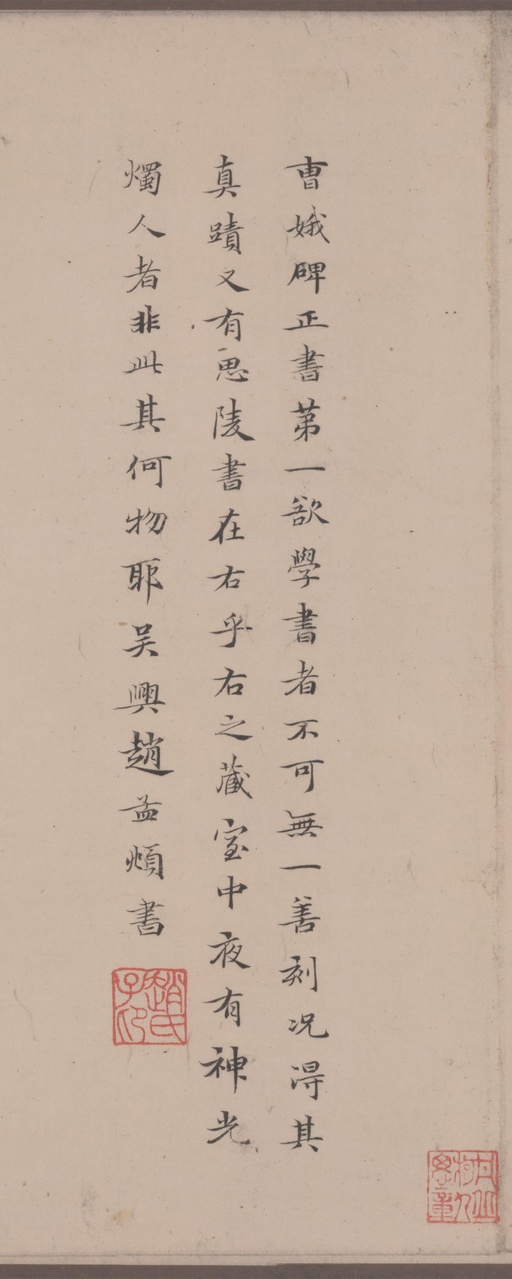 曺娥碑正書第一欲學書者不可無一善刻況得其
真蹟又有思陵書在右乎右之藏室中夜有神光
燭人者非此其何物耶吴興趙孟頫書
趙氏子印